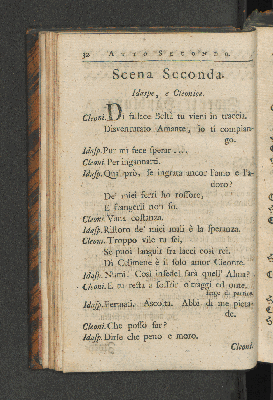 32 ATTO SECONDO.
Scena Seconda.
Idaspe, e Cleonice.
Cleoni. Di fallace Beltà tu vieni in traccia.
Disventurato Amante, io ti compian-
go.
Idasp. Pur mi fece sperar ....
Cleoni. Per ingannarti.
Idasp. Qual prò, se ingrata ancor l'amo e l'a-
doro?
De' miei ferri ho rossore,
E frangerli non so.
Cleoni. Vana costanza.
Idasp. Ristoro de' miei mali è la speranza.
Cleoni. Troppo vile tu sei,
Se puoi languir fra lacci così rei.
Di Celimene è il solo amor Cleonte.
Idasp. Numi! Così infedel sarà quell' Alma?
Cleoni. E tu resta a soffrir oltraggi ed onte.
finge di partire.
Idasp. Fermati. Ascolta. Abbi di me pieta-
de.
Cleoni. Che posso far?
Idasp. Dirle che peno e moro.
Cleoni.